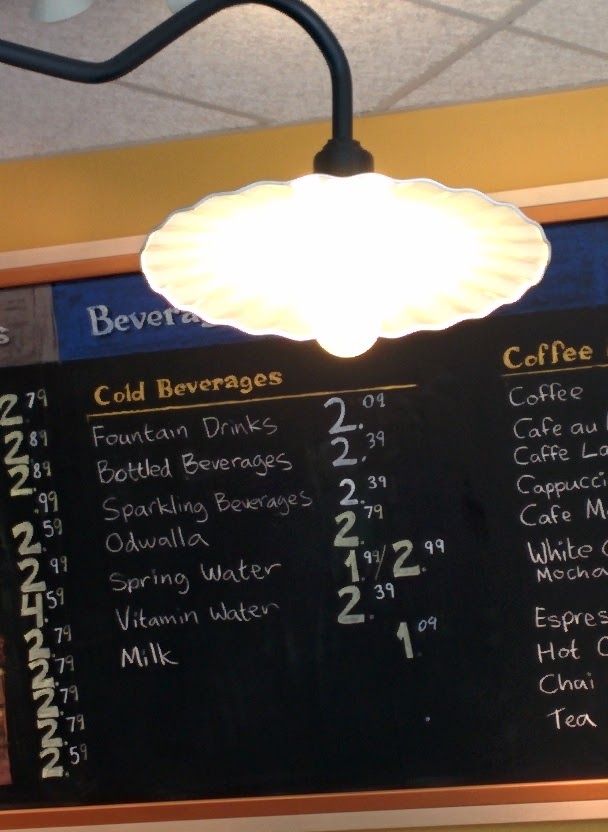 s
Bevera
2.79
2.89
2.89
.99
2.59
2.99
4.59
2.79
2.79
2.79
2.79
2.59
Cold Beverages
Fountain Drinks 2.09
Bottled Beverages 2.39
Sparkling Beverages 2.39
Odwalla 2.79
Spring Water 1.99/2.99
Vitamin Water 2.39
Milk 1.09
Coffee
Coffee
Cafe au
Caffe La
Cappucci
Cafe M
White C
Mocha
Espres
Hot C
Chai
Tea